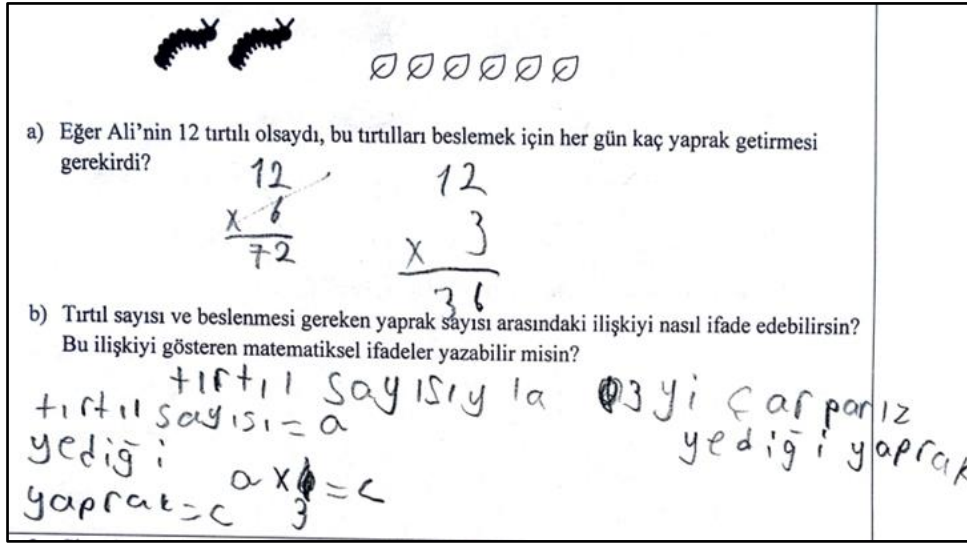 a) Eğer Ali'nin 12 tırtılı olsaydı, bu tırtılları beslemek için her gün kaç yaprak getirmesi
gerekirdi?
12
x 6
72
12
x 3
36
b) Tırtıl sayısı ve beslenmesi gereken yaprak sayısı arasındaki ilişkiyi nasıl ifade edebilirsin?
Bu ilişkiyi gösteren matematiksel ifadeler yazabilir misin?
tırtıl sayısıyla 3 yi çarparız
yediği yaprak
tırtıl sayısı = a
yediği
yaprak = c
a x 3 = c